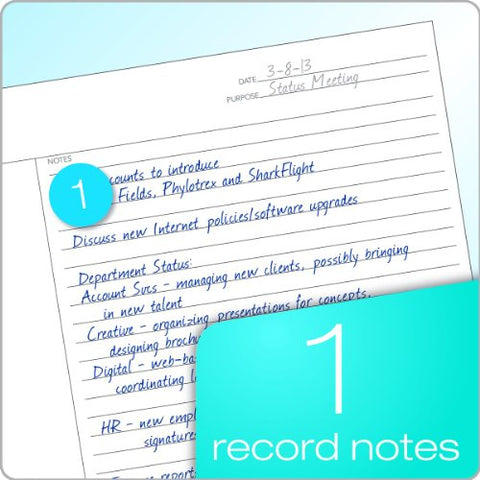 DATE 3-8-13
PURPOSE Status Meeting
NOTES
1
counts to introduce
Fields, Phylotrex and SharkFlight
Discuss new Internet policies/software upgrades
Department Status:
Account Svcs - managing new clients, possibly bringing
in new talent
Creative - organizing presentations for concepts,
designing
Digital -
coordinating
HR - new
1
record notes